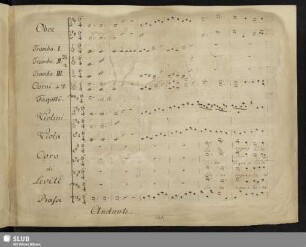 Oboe
Tromba I.
Tromba II.
Tromba III.
Corni
Fagotti.
Violini
Viola
Coro
di
Leviti
Bassi
Andante
SLUB
Wir führen Wissen.